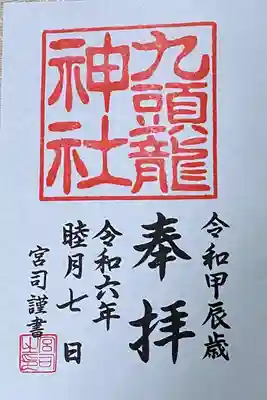 九頭龍
神社
令和甲辰歳
奉拝
令和六年
睦月七日
宮司謹書